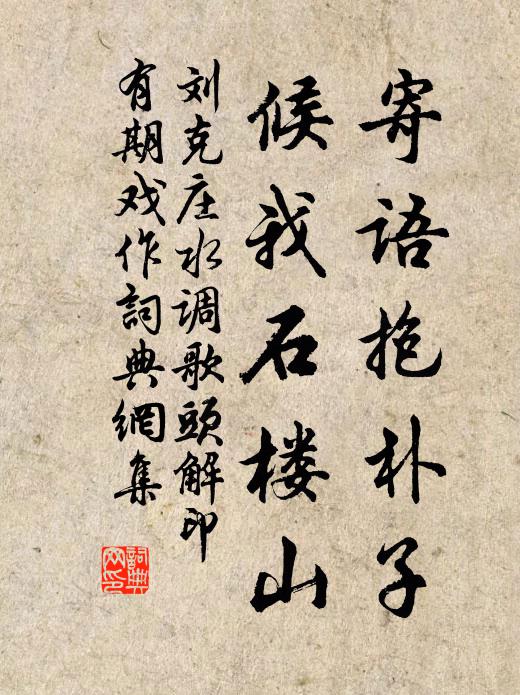 寄语抱朴子
候我石楼山
刘克庄水调歌头解印
有期戏作詞典網集
詞典
网印